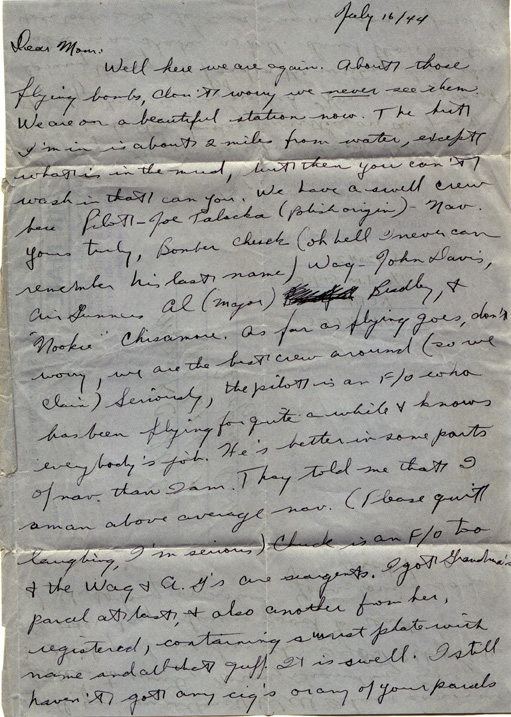 July 16/44
Dear Mom:
Well here we are again. About those
flying bombs, don't worry we never see them.
We are on a beautiful station now. The hut
I'm in is about 2 miles from water, except
what is in the mud, but then you can't
wash in that can you. We have a swell crew
here Pilot - Joe Talocka (Polish origin) - Nav.
yours truly, Bomber Chuck (oh hell I never can
remember his last name) Wag - John Davis,
Air Gunners Al (Major) Bradley, &
"Nookie" Chisamore. As far as flying goes, don't
worry, we are the best crew around (so we
claim) Seriously, the pilot is an F/O who
has been flying for quite a while & knows
everybody's job. He's better in some parts
of nav. than I am. They told me that I
am an above average nav. (Please quit
laughing, I'm serious) Chuck is an F/O too
& the Wag & A.G's are sargents. I got Grandma's
parcel at last, & also another from her,
registered, containing a wrist plate with
name and all that guff It is swell. I still
haven't got any cig's or any of your parcels